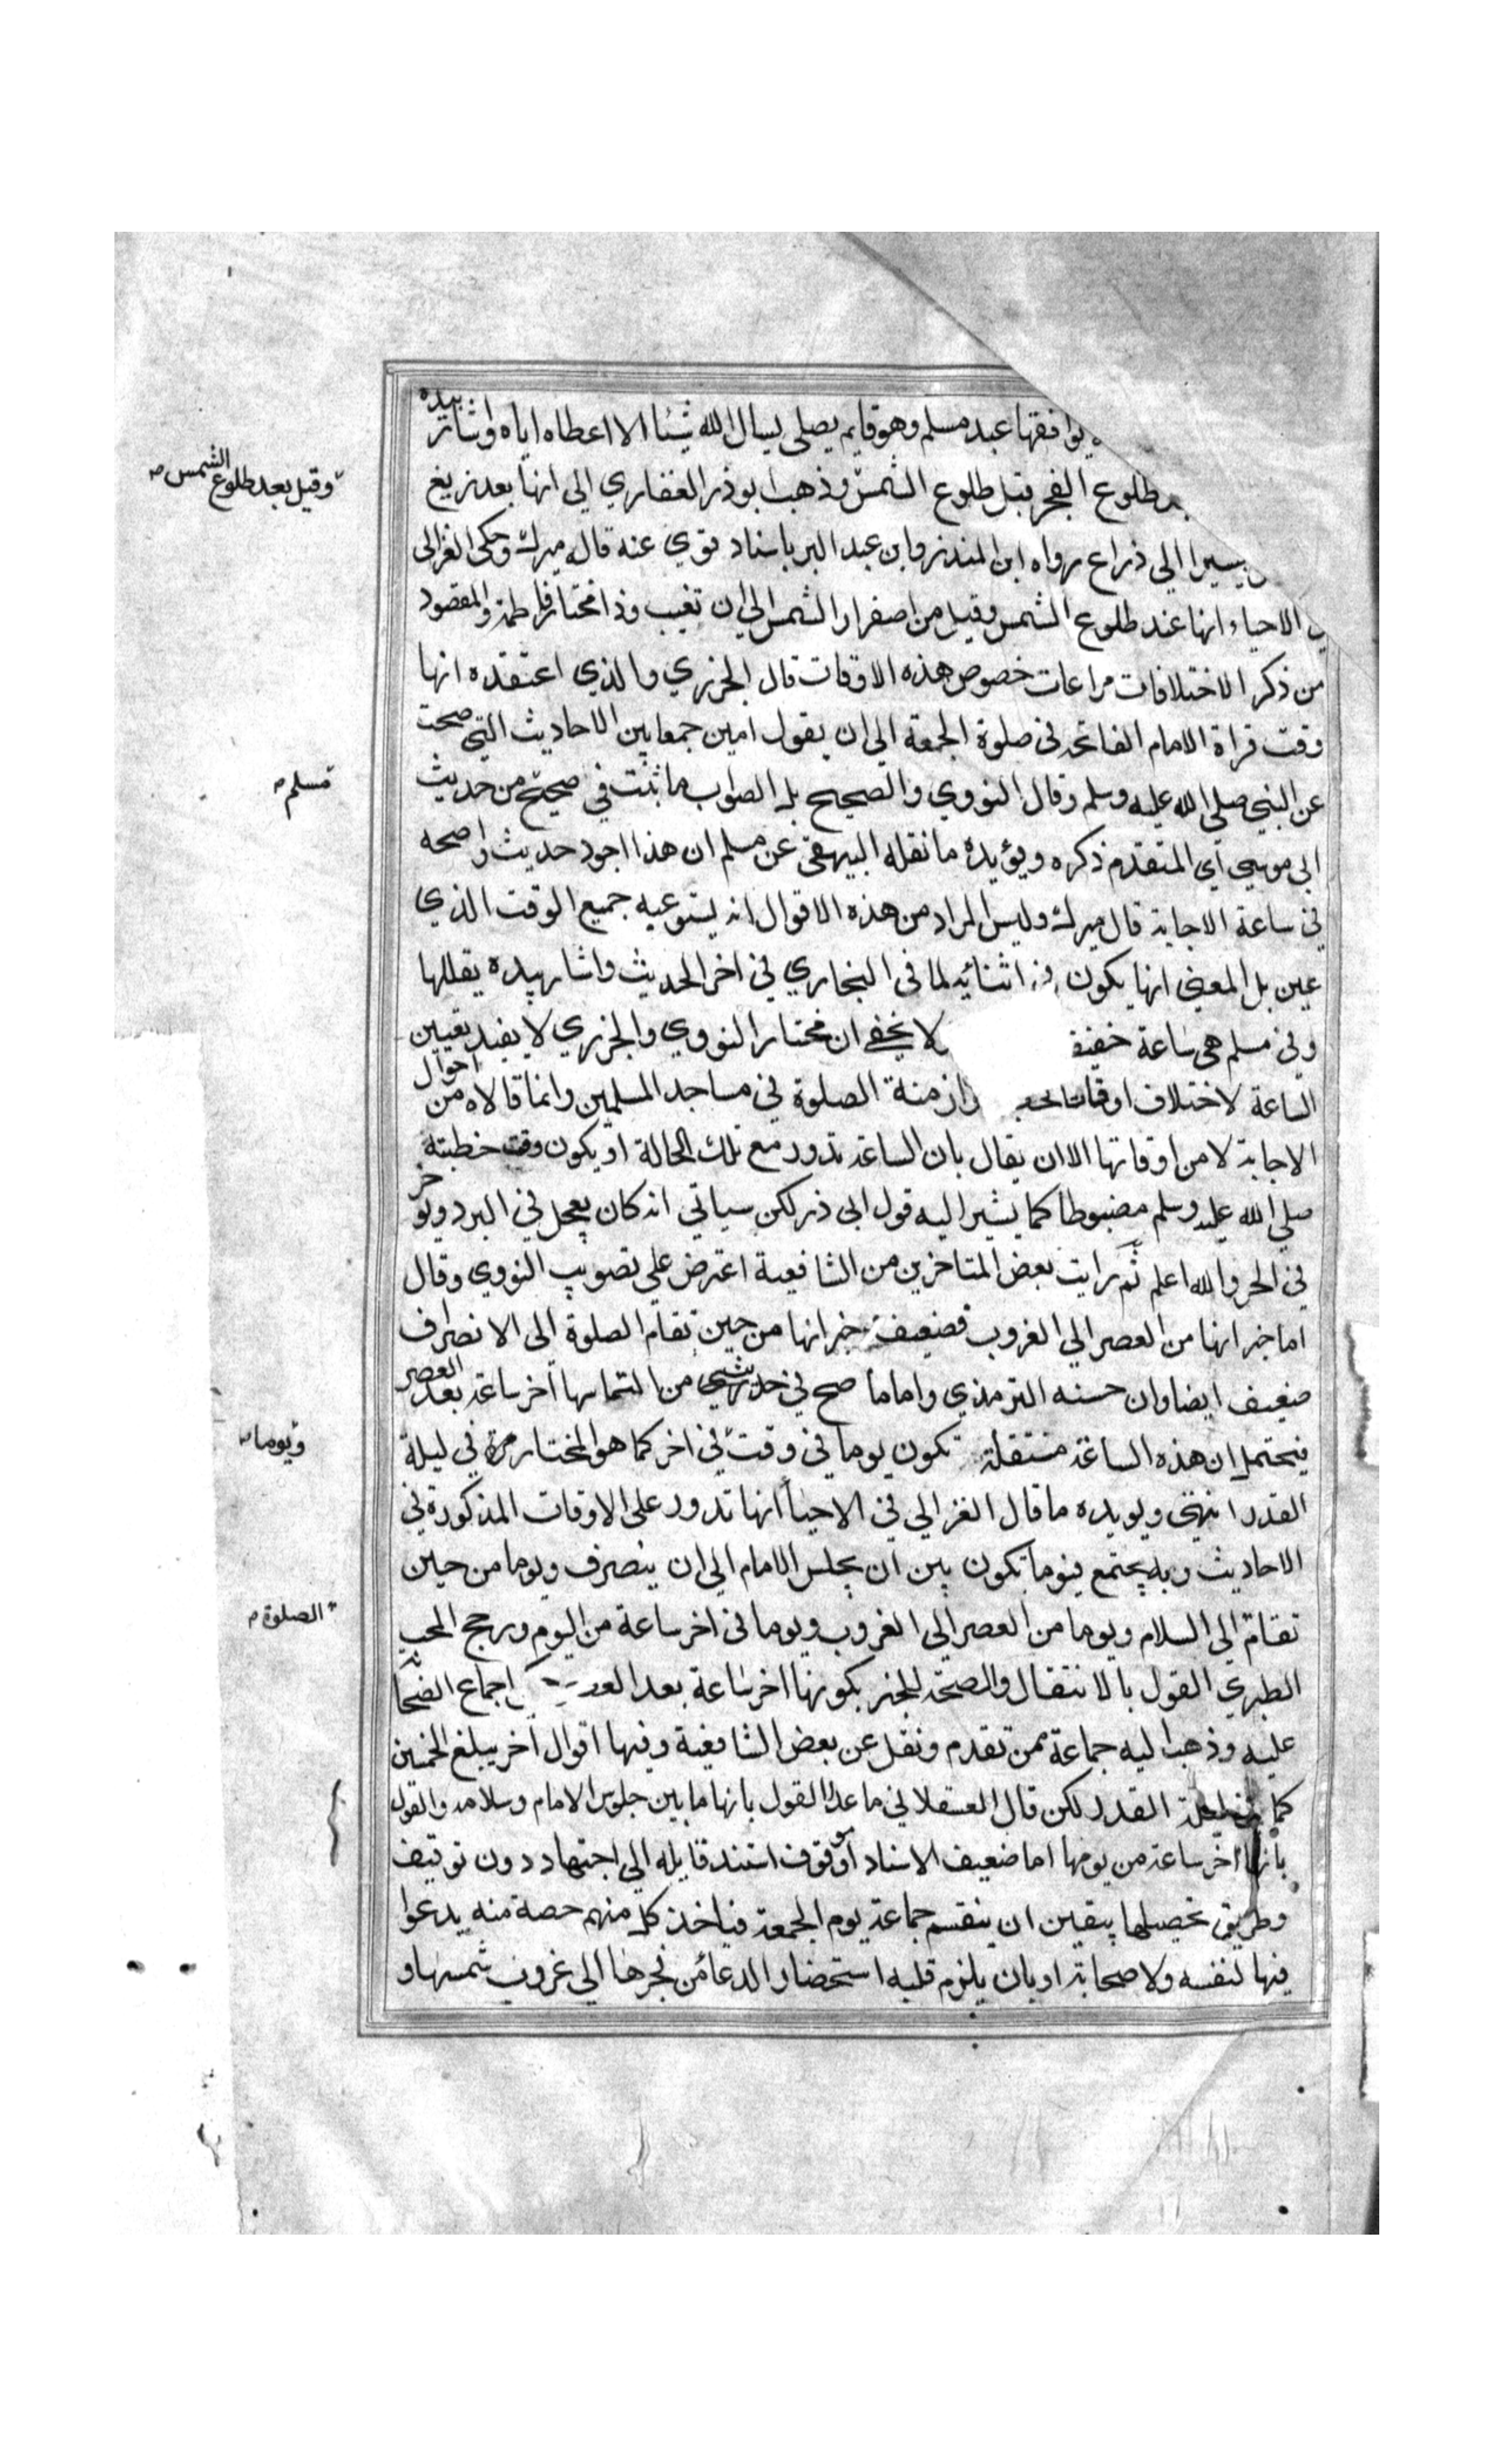 يوافقها عبد مسلم وهو قايم يصلي يسال الله شيئا الا اعطاه اياه واشار بيده
طلوع الفجر قبل طلوع الشمس وذهب ابوذر الغفاري الي انها بعد زيغ
وقيل بعد طلوع الشمس
يسيرا الي ذراع رواه ابن المنذر وابن عبد البر باسناد قوي عنه قال ميرك وحكى الغزالى
الاحياء انها عند طلوع الشمس وقيل من اصفرار الشمس الي ان تغيب وذا مختار فاطمة والمقصود
من ذكر الاختلافات مراعات خصوص هذه الاوقات قال الجزري والذي اعتقده انها
وقت قراة الامام الفاتحة فى صلوة الجمعة الى ان يقول امين جمعا بين الاحاديث التي صحت
عن النبي صلي الله عليه وسلم وقال النووي والصحيح بل الصواب ما ثبت في صحيح من حديث
مسلم
ابى موسي اي المتقدم ذكره ويؤيده ما نقله البيهقى عن مسلم ان هذا اجود حديث واصحه
في ساعة الاجابة قال ميرك وليس المراد من هذه الاقوال انه يستوعبه جميع الوقت الذي
عين بل المعنى انها يكون في اثنائيه لما فى البخاري في اخر الحديث واشار بيده يقللها
وفي مسلم هى ساعة خفيفة لا يخفي ان مختار النووي والجزري لا يفيد تعيين
الساعة لاختلاف اوقات وازمنة الصلوة في مساجد المسلمين وانما قالاه من احوال
الاجابة لا من اوقاتها الا ان يقال بان الساعة تدور مع تلك الحالة او يكون وقت خطبته
صلي الله عليه وسلم مضبوطا كما يشير اليه قول ابى ذر لكن سياتي انه كان يعجل في البرد ويؤخر
في الحر والله اعلم ثم رايت بعض المتاخرين من الشافعية اعترض علي تصويب النووي وقال
اما خبر انها من العصر الي الغروب فضعيف خبر انها من حين تقام الصلوة الى الانصراف
ضعيف ايضا وان حسنه الترمذي واما ما صح في حديث من التماسها اخر ساعة بعد العصر
فيحتمل ان هذه الساعة منتقلة تكون يوما في وقت في اخر كما هو المختار في ليلة
ويوما
القدر انتهى ويويده ما قال الغزالي في الاحيا انها تدور على الاوقات المذكورة في
الاحاديث وبه يجتمع فيوما تكون بين ان يجلس الامام الى ان ينصرف ويوما من حين
تقام الى السلام ويوما من العصر الي الغروب ويوما فى اخر ساعة من اليوم ورجح المحب
الصلوة
الطبري القول بالانتقال والصحة للخبر بكونها اخر ساعة بعد اجماع الصحابة
عليه وذهب اليه جماعة ممن تقدم ونقل عن بعض الشافعية وفيها اقوال اخر يبلغ الخمسين
كما القدر لكن قال العسقلاني ما عدا القول بانها ما بين جلوس الامام وسلامه والقول
بانها اخر ساعة من يومها اما ضعيف الاسناد او موقوف استند قايله الي اجتهاد دون توقيف
وطريق تحصيلها بيقين ان ينقسم جماعة يوم الجمعة فياخذ كل منهم حصة منه يدعوا
فيها لنفسه ولاصحابه او بان يلزم قلبه استحضار الدعا من فجرها الى غروب شمسها و